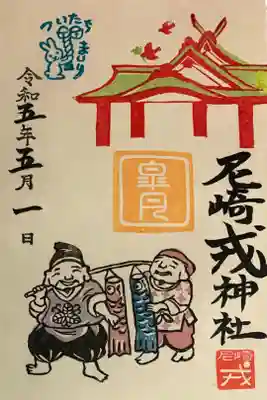 尼崎戎神社
皐月
ついたちまいり
令和五年五月一日
尼崎
戎